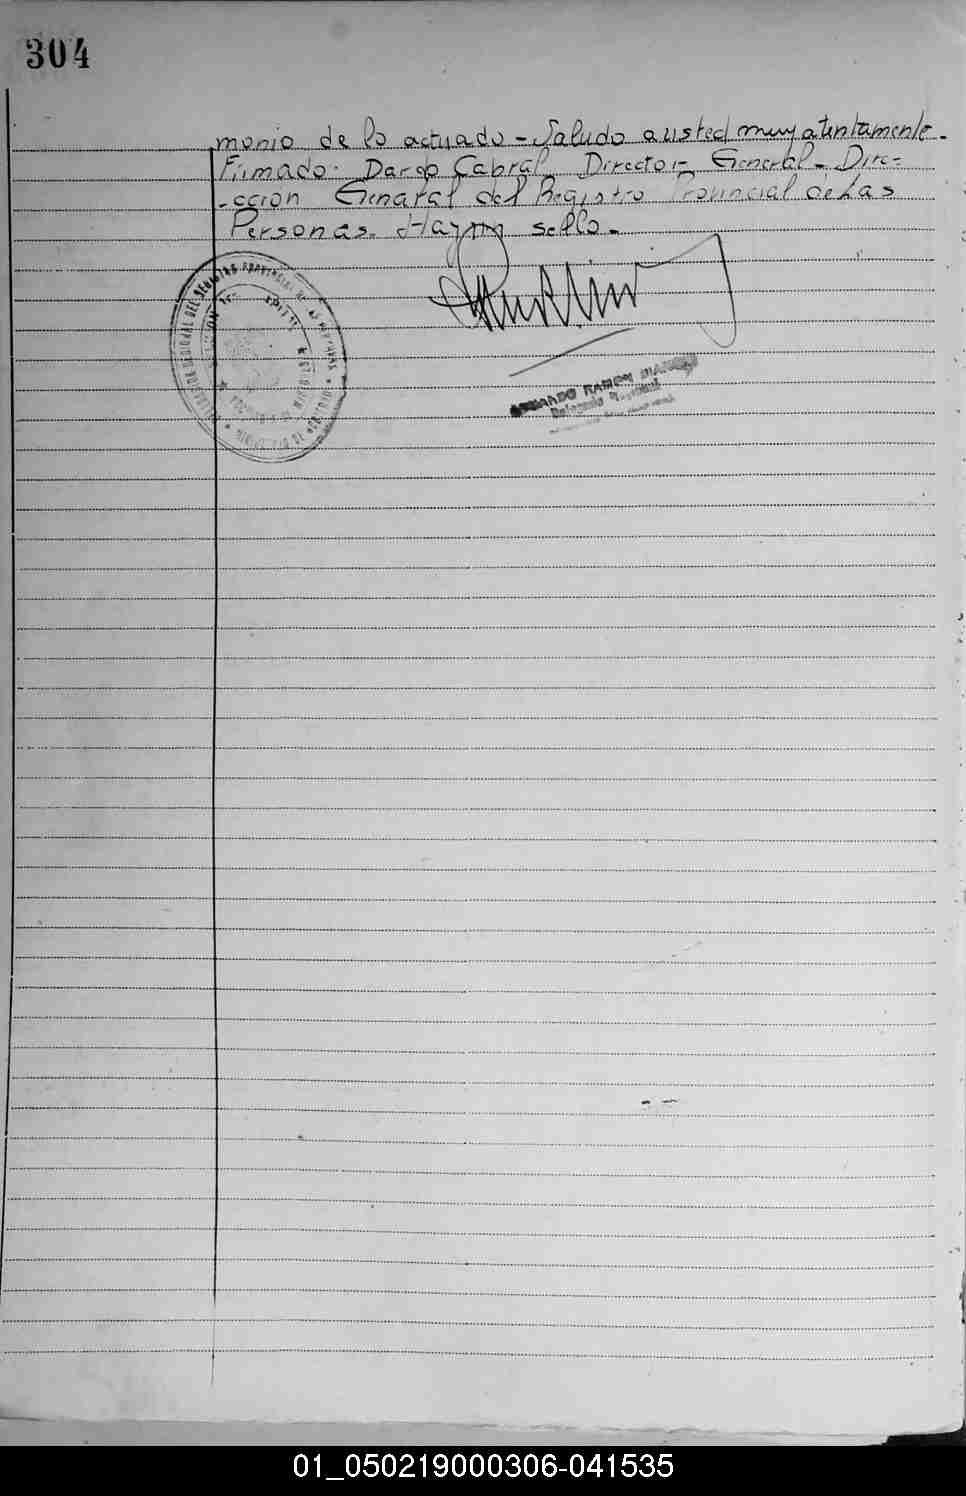 304
monio de lo actuado - Saludo a usted muy atentamente -
Firmado: Cabral Director General - Dire=
-ccion General del Registro Provincial de Las
Personas. Hay un sello.
RAMON
Delegado Regional
01_050219000306-041535